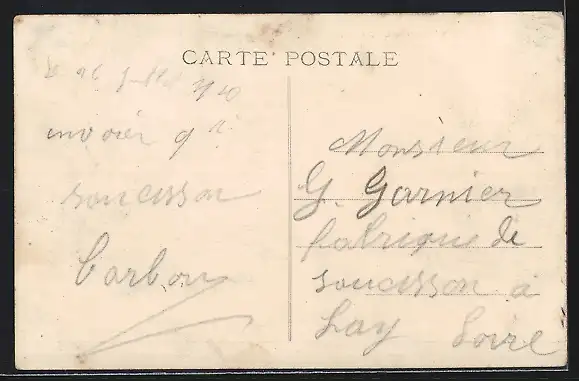 CARTE POSTALE
envoier 9 k
soucisson
Carbon
Monsieur
G. Garnier
fabrique de
soucisson à
Lay Loire